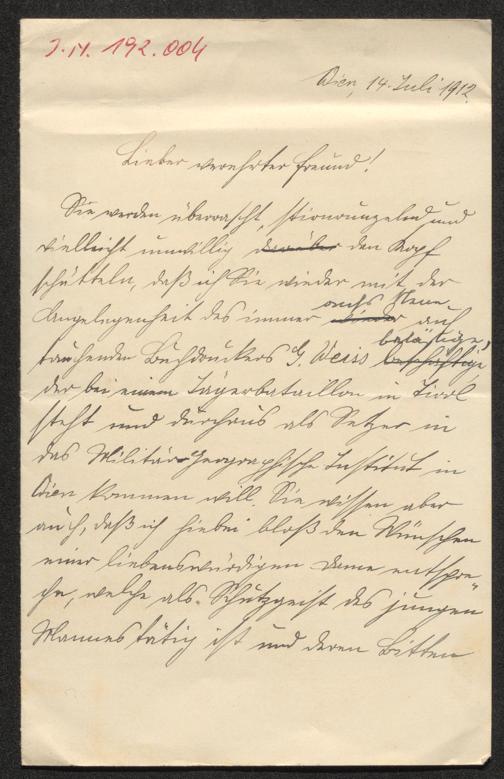 J. N. 192.004
Wien, 14. Juli 1912.
Lieber verehrter Freund!
Sie werden überrascht, stirnrunzelnd und
vielleicht unwillig darüber den Kopf
schütteln, daß ich Sie wieder mit der
aufs Neue
Angelegenheit des immer wieder auf
belästige,
tauchenden Buchdruckers G. Weiss beschäftige
der bei einem Jägerbataillon in Tirol
steht und durchaus als Setzer in
das Militär-Geographische Institut in
Wien kommen will. Sie wissen aber
auch, daß ich hiebei bloß den Wünschen
einer liebenswürdigen Dame entspre-
che, welche als Schutzgeist des jungen
Mannes tätig ist und deren Bitten